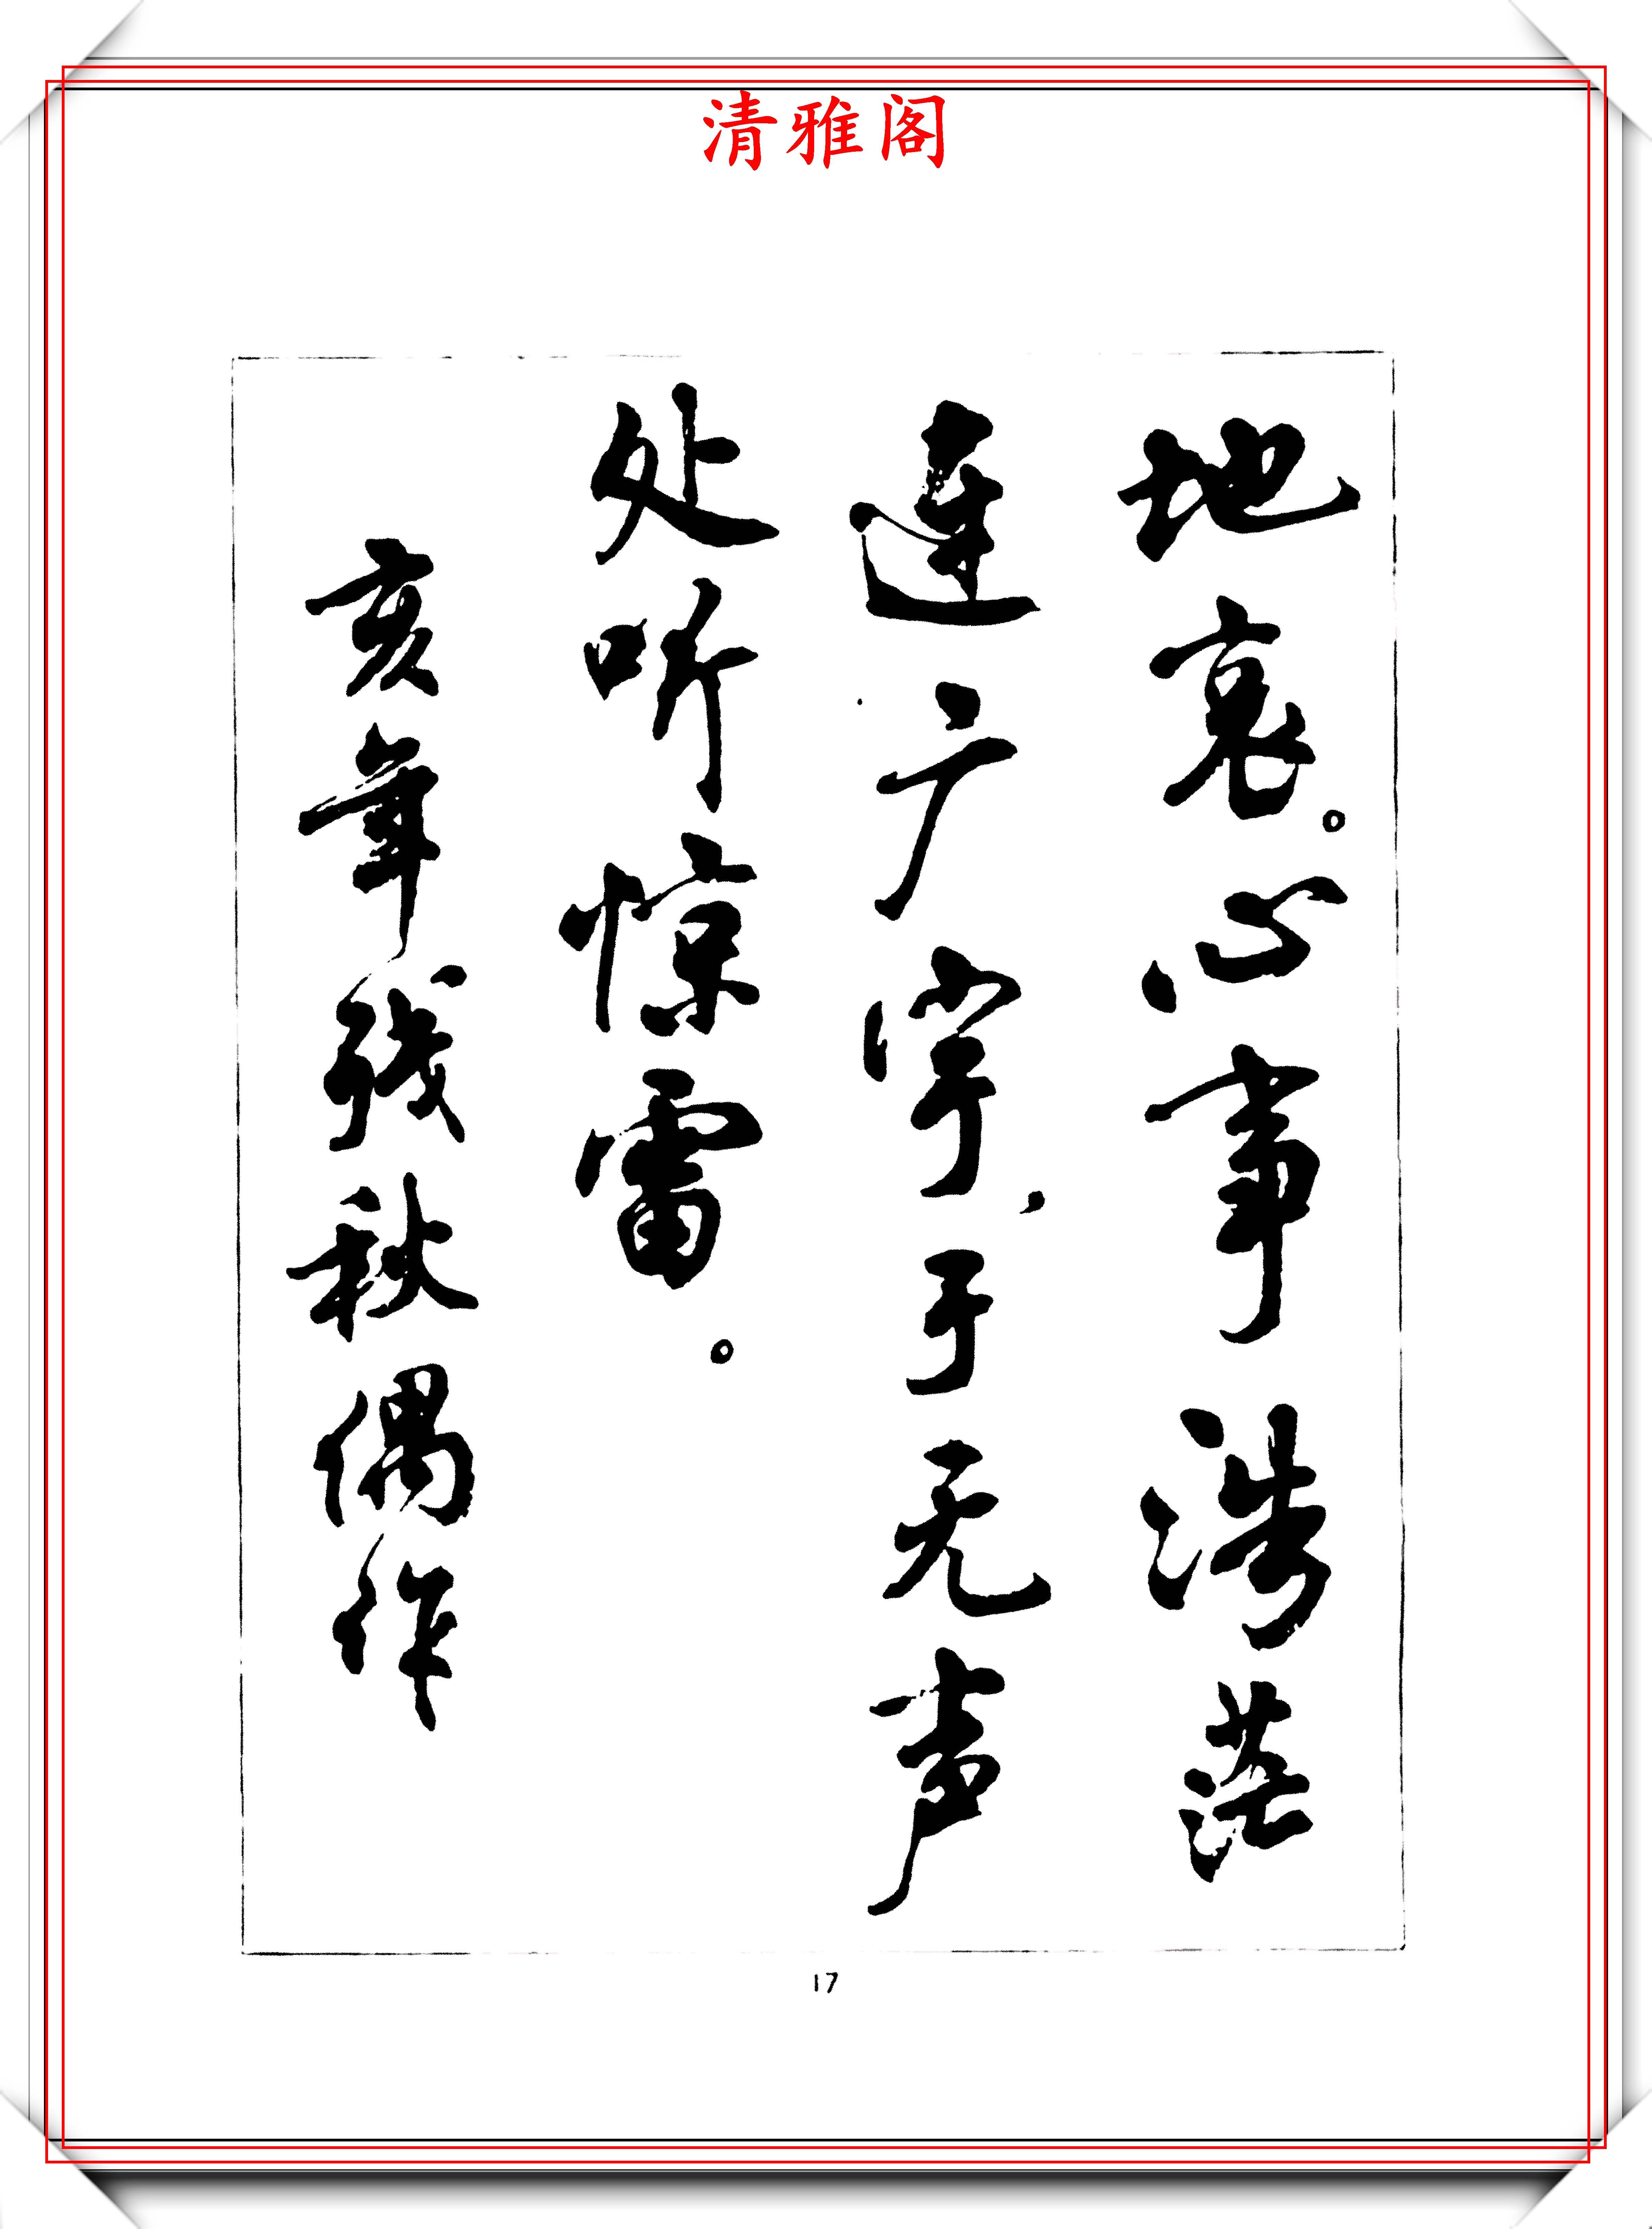 清雅阁
地哀。心事浩茫
连广宇，于无声
处听惊雷。
亥年残秋偶作
17